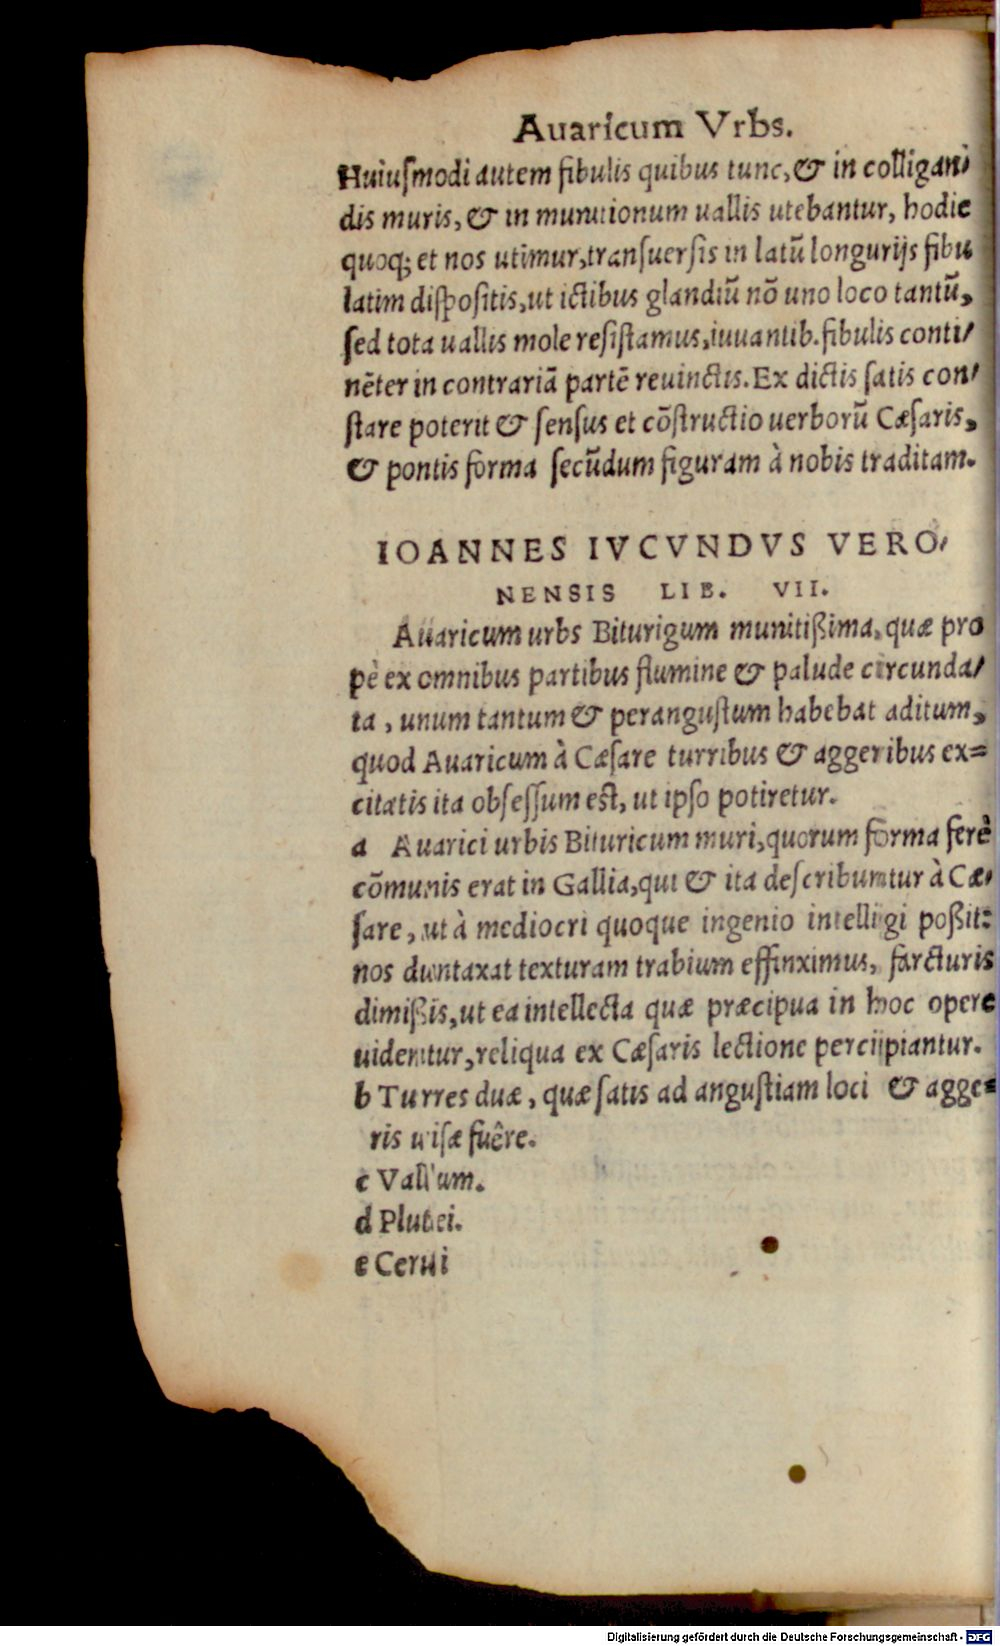 Auaricum Vrbs.
Huiusmodi autem fibulis quibus tunc, & in colligan-
dis muris, & in munitionum uallis utebantur, hodie
quoq; et nos utimur, transuersis in latū longurijs fibu
latim dispositis, ut ictibus glandiū nō uno loco tantū,
sed tota uallis mole resistamus, iuuantib. fibulis conti-
nēter in contrariā partē reuinctis. Ex dictis satis con-
stare poterit & sensus et cōstructio uerborū Cæsaris,
& pontis forma secūdum figuram à nobis traditam.
IOANNES IVCVNDVS VERO-
NENSIS LIB. VII.
Auaricum urbs Biturigum munitißima, quæ pro
pè ex omnibus partibus flumine & palude circunda-
ta, unum tantum & perangustum habebat aditum,
quod Auaricum à Cæsare turribus & aggeribus ex=
citatis ita obsessum est, ut ipso potiretur.
a Auarici urbis Bituricum muri, quorum forma ferè
cōmunis erat in Gallia, qui & ita describuntur à Cæ-
sare, ut à mediocri quoque ingenio intelligi poßit:
nos duntaxat texturam trabium effinximus, farcturis
dimißis, ut ea intellecta quæ præcipua in hoc opere
uidentur, reliqua ex Cæsaris lectione percipiantur.
b Turres duæ, quæ satis ad angustiam loci & agge=
ris uisæ fuêre.
c Vallum.
d Plutei.
e Cerui
Digitalisierung gefördert durch die Deutsche Forschungsgemeinschaft - DFG